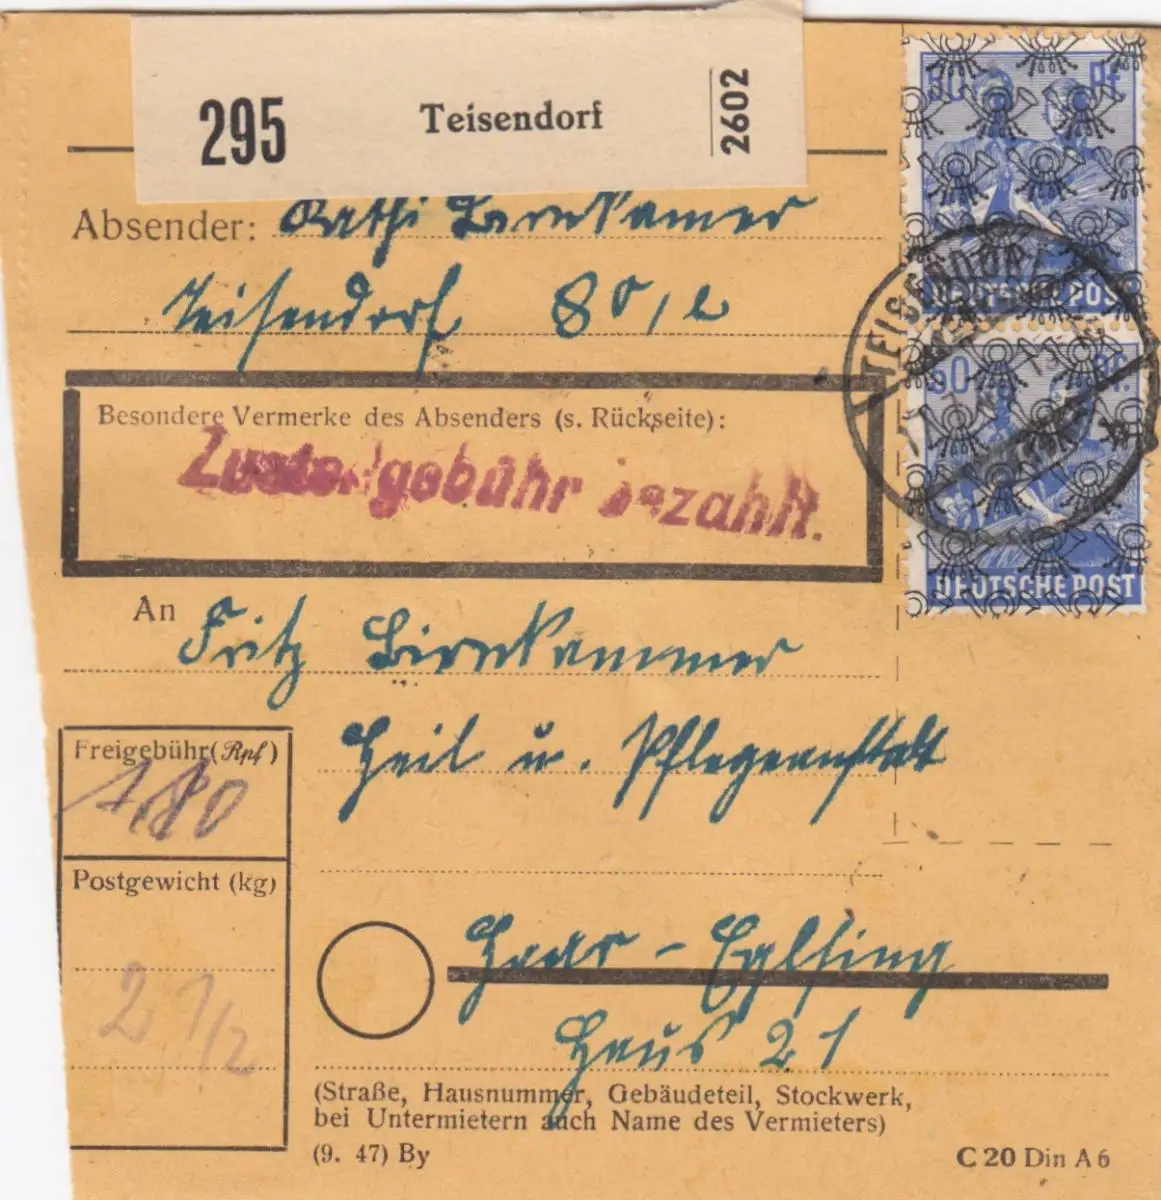 295 Teisendorf 2602
Absender: Kathi Birnkamer
Teisendorf 80 1/2
Besondere Vermerke des Absenders (s. Rückseite):
Zustellgebühr bezahlt.
50 Pf.
DEUTSCHE POST
TEISENDORF
50 Pf.
DEUTSCHE POST
An Fritz Birnkammer
Heil u. Pflegeanstalt
Freigebühr (Rpf)
1,80
Postgewicht (kg)
2 1/2
Haar - Eglfing
Haus 21
(Straße, Hausnummer, Gebäudeteil, Stockwerk,
bei Untermietern auch Name des Vermieters)
(9. 47) By
C 20 Din A 6